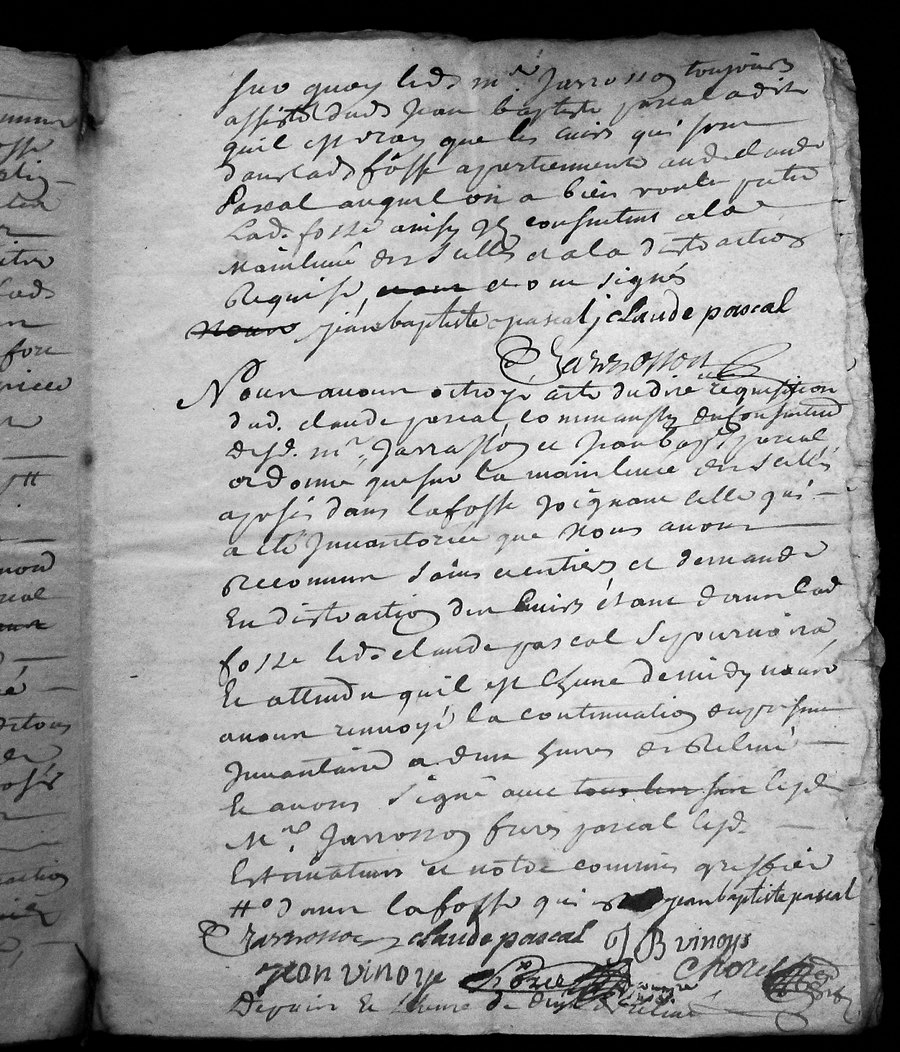 sur quoy led. mre Jarrosson toujours
assisté dud. Jean baptiste pascal a dit
quil est vray que les cuirs qui sont
dans lad. fosse apartiennent aud. claude
Pascal auquel on a bien voulu
Lad. fosse ainsy consentent a la
Mainlevée des scellés et a la distraction
Requise, et ont signés
jean baptiste pascal claude pascal
Jarrosson
Nous avons octroyé acte du dire requisition
dud. claude pascal, du consentement
desd. mre Jarrosson et Jean bapt. pascal
ordonné que sur la mainlevée des scellés
aposés dans la fosse joignant celle qui
a été Inventoriée que Nous avons
Reconnus sains et entiers et demande
En distraction des Cuirs étant dans lad.
fosse led. claude pascal se pourvoira
Et attendu quil est lheure de midy
avons renvoyé la continuation du present
Inventaire a deux heures de Relevée
Et avons signé avec tous les lesd.
Mre Jarrosson freres pascal lesd.
Estimateurs et notre commis greffier
dans la fosse qui jean baptiste pascal
Jarrosson claude pascal J B vinoys
jean vinoys
Depuis Et heures de Relevée